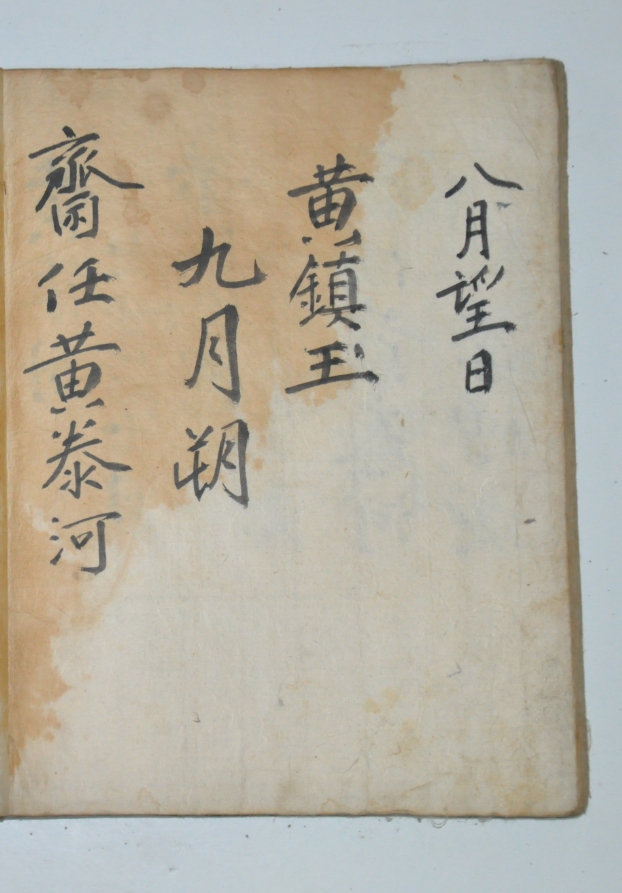 八月望日
黄鎮玉
九月朔
齋任黄泰河